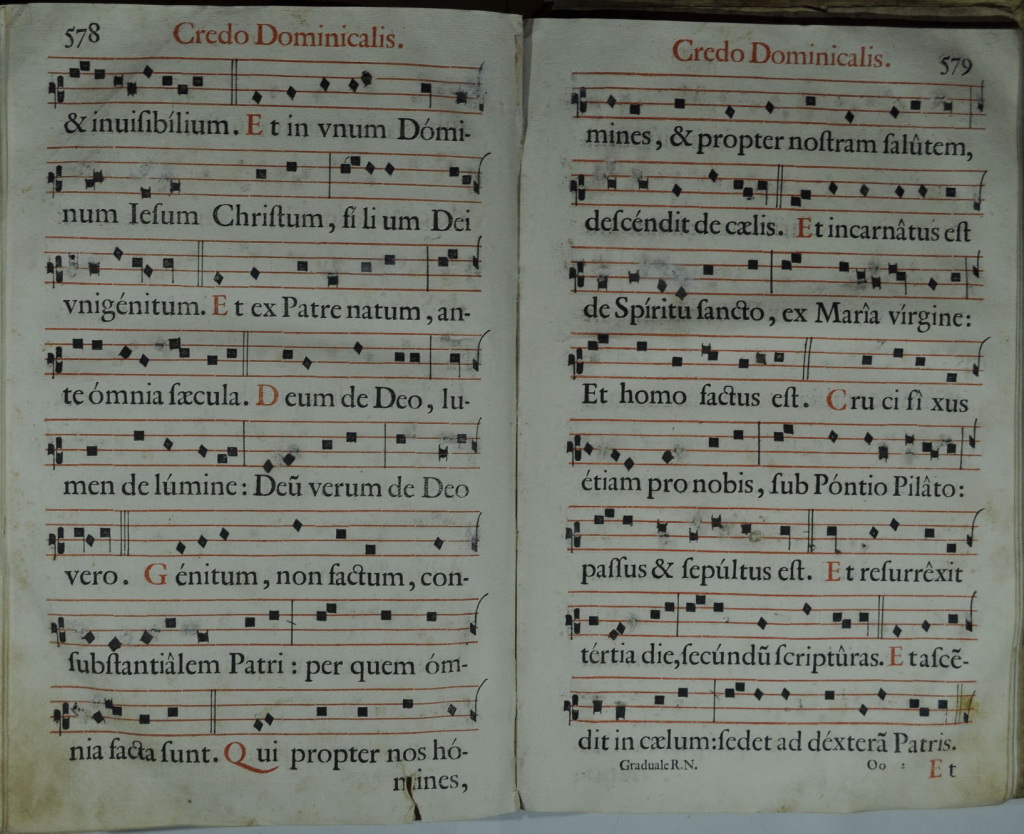 578
Credo Dominicalis.
& inuiſibílium. Et in vnum Dómi-
num Ieſum Chriſtum, fi li um Dei
vnigénitum. Et ex Patre natum, an-
te ómnia ſæcula. Deum de Deo, lu-
men de lúmine: Deũ verum de Deo
vero. Génitum, non factum, con-
ſubſtantiâlem Patri: per quem óm-
nia facta ſunt. Qui propter nos hó-
mines,
Credo Dominicalis.
579
mines, & propter noſtram ſalûtem,
deſcéndit de cælis. Et incarnâtus eſt
de Spíritu ſancto, ex Marîa vírgine:
Et homo factus eſt. Cru ci fî xus
étiam pro nobis, ſub Póntio Pilâto:
paſſus & ſepúltus eſt. Et reſurrêxit
tértia die, ſecúndũ ſcriptûras. Et aſcẽ-
dit in cælum: ſedet ad déxterã Patris.
Graduale R.N.
Oo 2
Et